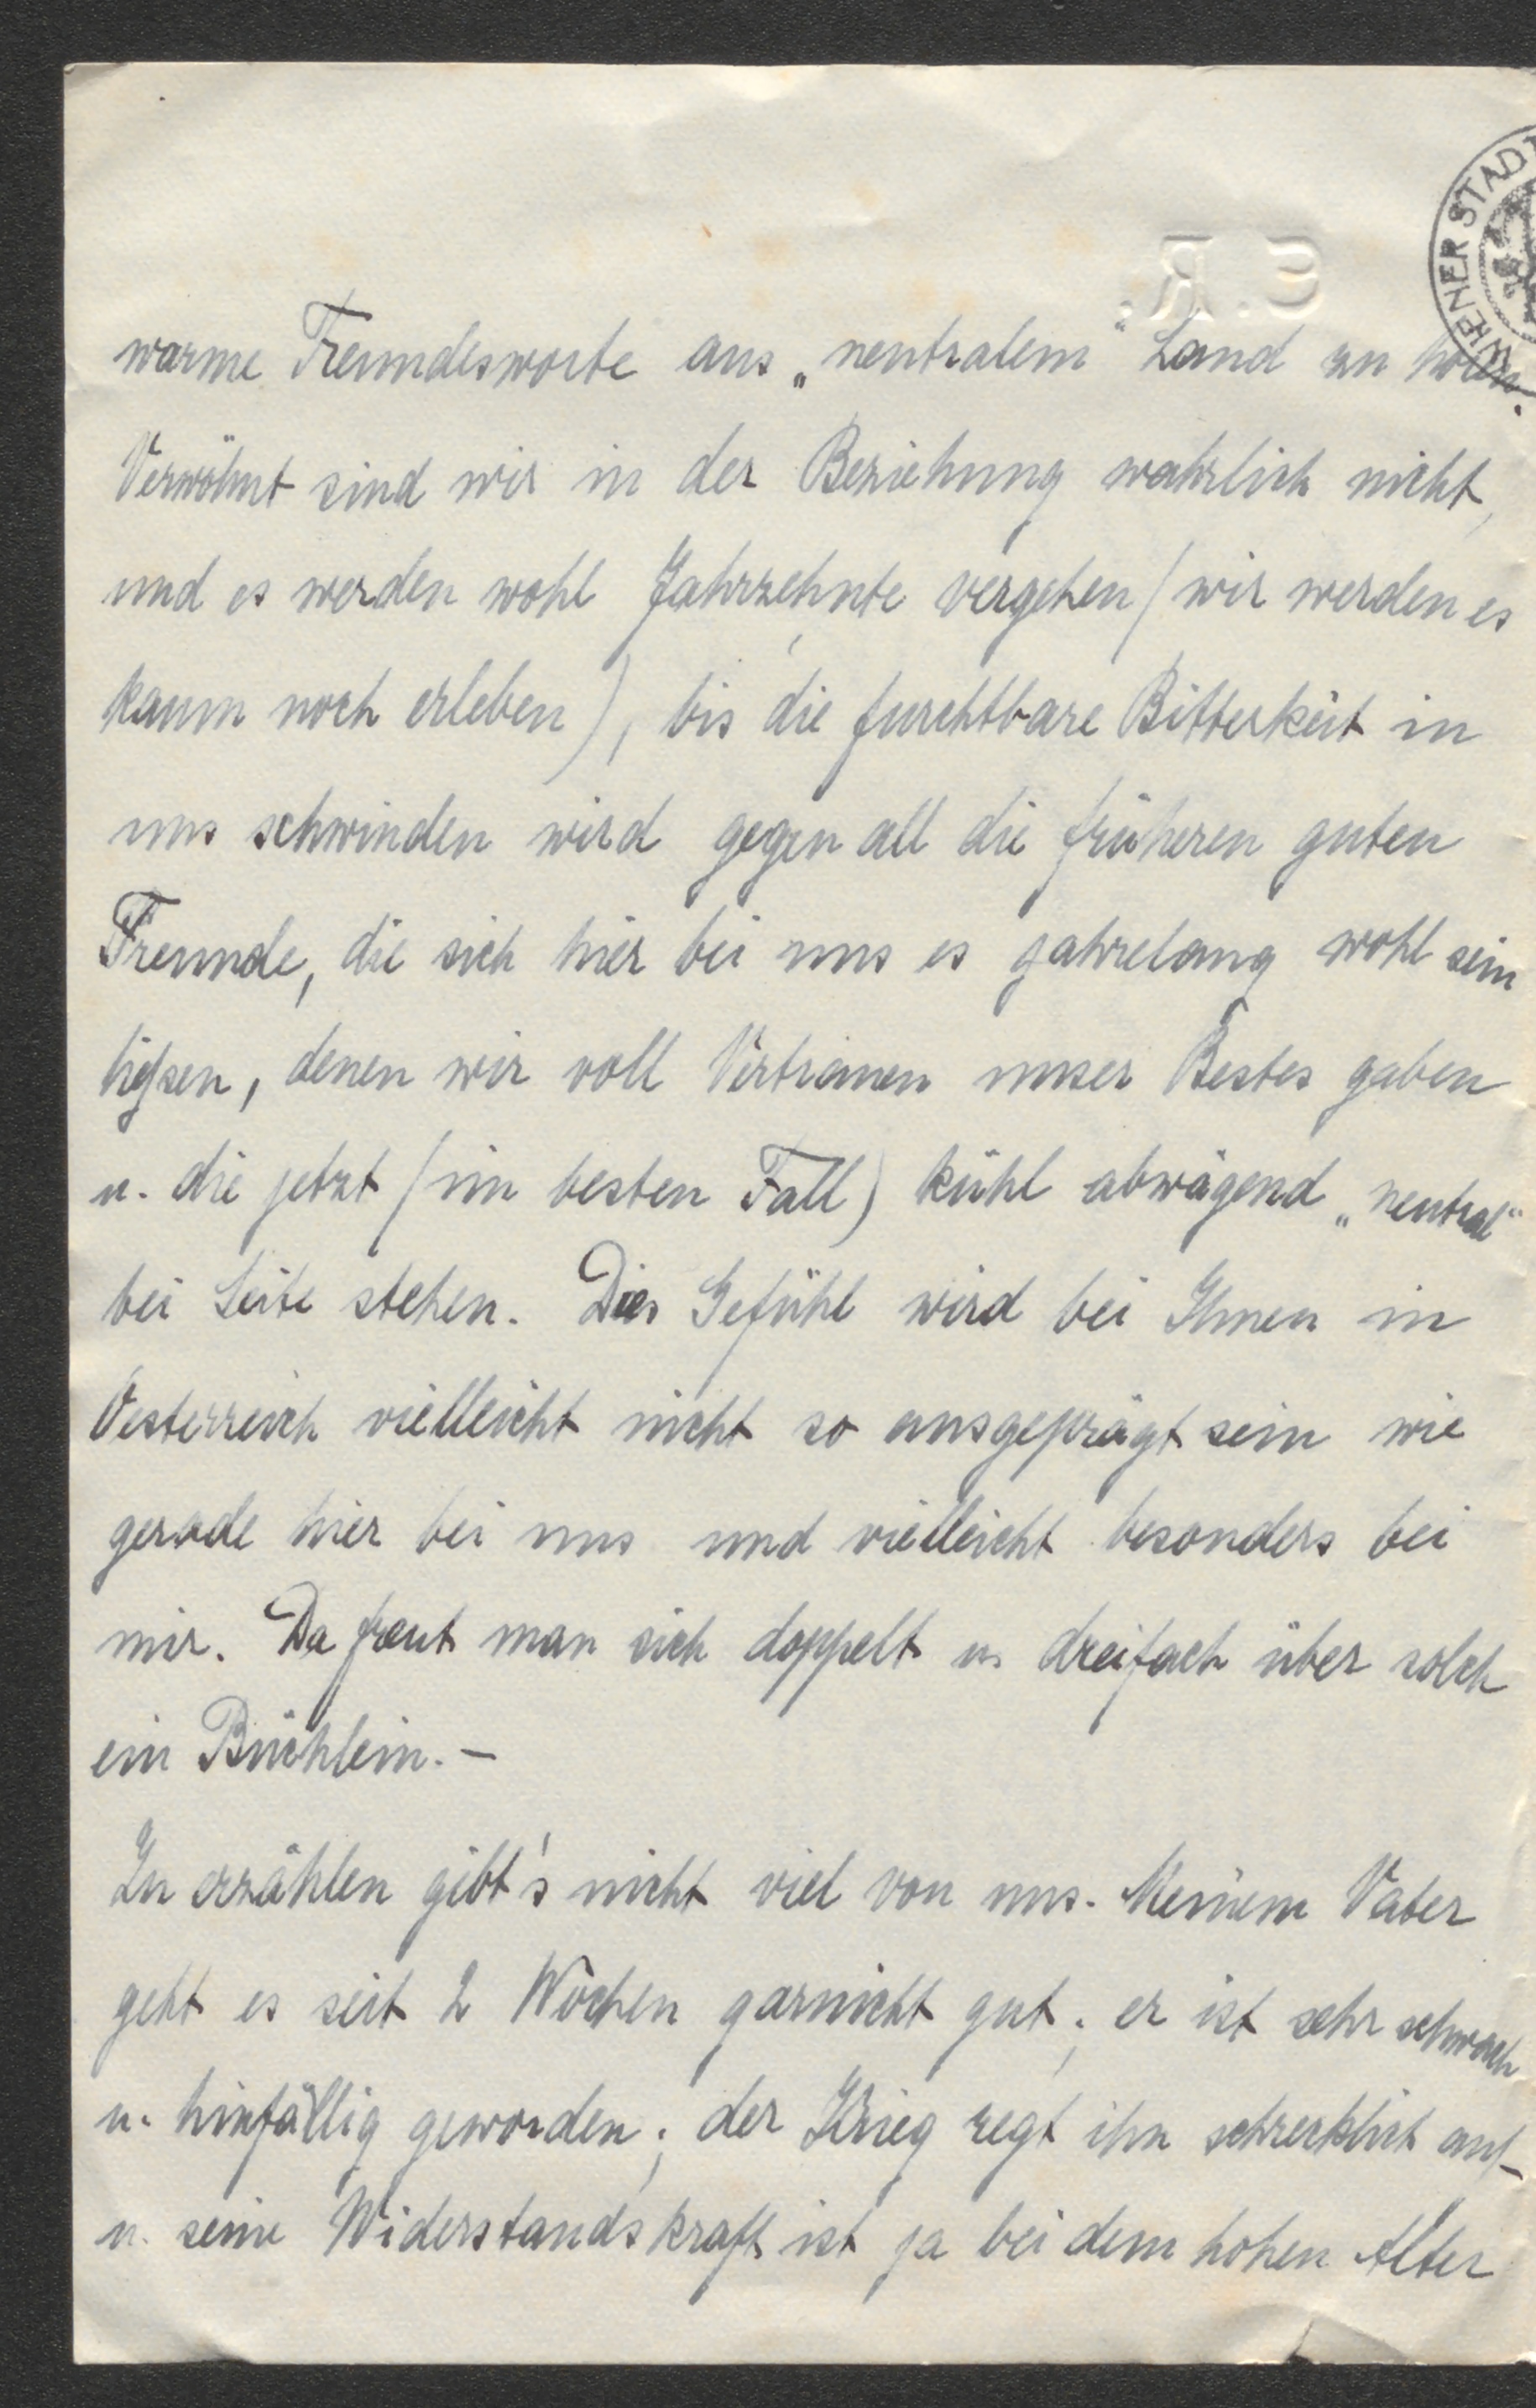 E. R.
WIENER STADT
warme Freundesworte aus „neutralem" Land zu hören.
Verwöhnt sind wir in der Beziehung wahrlich nicht,
und es werden wohl Jahrzehnte vergehen (wir werden es
kaum noch erleben), bis die furchtbare Bitterkeit in
uns schwinden wird gegen all die früheren guten
Freunde, die sich hier bei uns es jahrelang wohl sein
ließen, denen wir voll Vertrauen unser Bestes gaben
u. die jetzt (im besten Fall) kühl abwägend „neutral"
bei Seite stehen. Dies Gefühl wird bei Ihnen in
Oesterreich vielleicht nicht so ausgeprägt sein wie
gerade hier bei uns und vielleicht besonders bei
mir. Da freut man sich doppelt u. dreifach über solch
ein Büchlein. –
Zu erzählen gibt's nicht viel von uns. Meinem Vater
geht es seit 2 Wochen garnicht gut; er ist sehr schwach
u. hinfällig geworden; der Krieg regt ihn schrecklich auf
u. seine Widerstandskraft ist ja bei dem hohen Alter